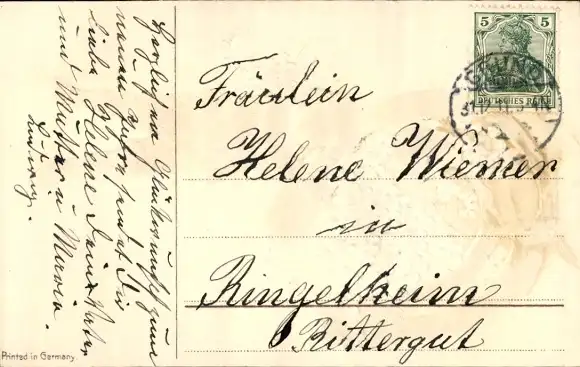 Herzlichen Glückwunsch zum
neuen Jahr sendet Dir
liebe Helene Deine Vater
und Mutter u Maria.
Ludwig.
5 5
DEUTSCHES REICH
31.12.11.
Fräulein
Helene Wiemer
in
Ringelheim
Rittergut
Printed in Germany